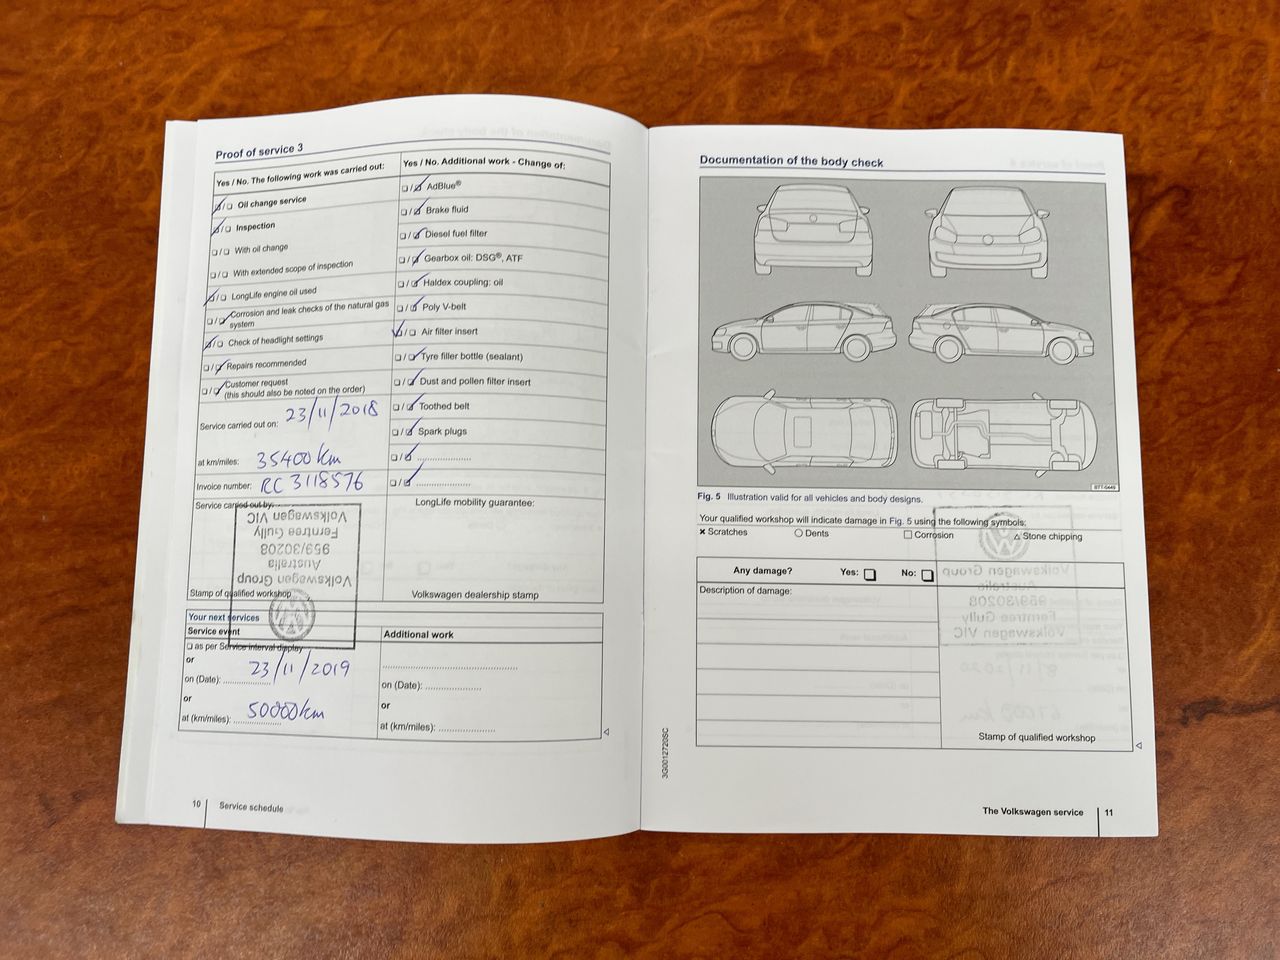 Proof of service 3
Yes / No. The following work was carried out:
Oil change service
Inspection
With oil change
With extended scope of inspection
LongLife engine oil used
Corrosion and leak checks of the natural gas
system
Check of headlight settings
Repairs recommended
Customer request
(this should also be noted on the order)
Service carried out on: 23/11/2018
at km/miles: 35400 km
Invoice number: RC 3118576
Service carried out by:
Volkswagen Group
Australia
959/30208
Ferntree Gully
Volkswagen VIC
Stamp of qualified workshop
Yes / No. Additional work - Change of:
AdBlue®
Brake fluid
Diesel fuel filter
Gearbox oil: DSG®, ATF
Haldex coupling: oil
Poly V-belt
Air filter insert
Tyre filler bottle (sealant)
Dust and pollen filter insert
Toothed belt
Spark plugs
LongLife mobility guarantee:
Volkswagen dealership stamp
Your next services
Service event
as per Service interval display
or
on (Date): 23/11/2019
or
at (km/miles): 50000km
Additional work
on (Date):
or
at (km/miles):
10 Service schedule
Documentation of the body check
Fig. 5 Illustration valid for all vehicles and body designs.
Your qualified workshop will indicate damage in Fig. 5 using the following symbols:
Scratches
Dents
Corrosion
Stone chipping
Any damage? Yes: No:
Description of damage:
Stamp of qualified workshop
3G0012720SC
The Volkswagen service 11